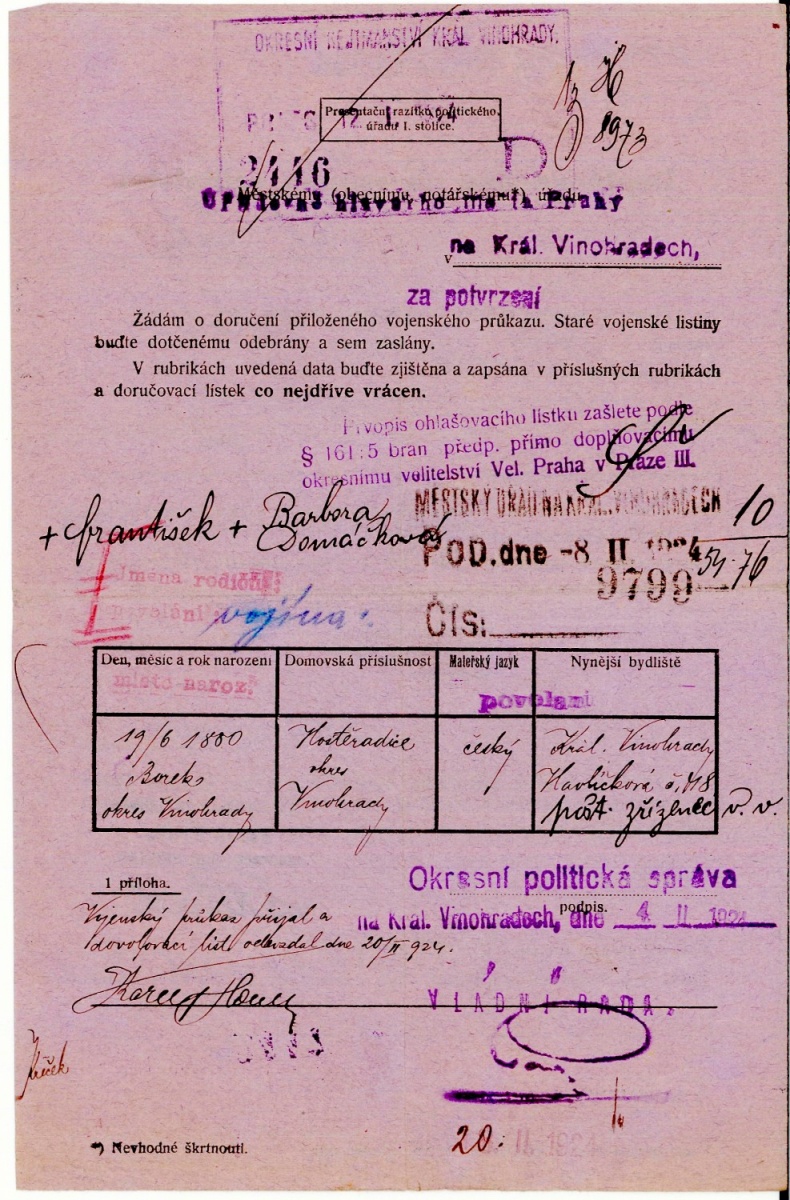 OKRESNÍ HEJTMANSTVÍ KRÁL. VINOHRADY.
Presentační razítko politického
úřadu I. stolice.
8973
2446
D
Městskému (obecnímu, notářskému*) úřadu
hlavního města Prahy
v na Král. Vinohradech,
za potvrzení
Žádám o doručení přiloženého vojenského průkazu. Staré vojenské listiny
buďte dotčenému odebrány a sem zaslány.
V rubrikách uvedená data buďte zjištěna a zapsána v příslušných rubrikách
a doručovací lístek co nejdříve vrácen.
Prvopis ohlašovacího lístku zašlete podle
§ 161:5 bran předp. přímo doplňovacímu
okresnímu velitelství Vel. Praha v Praze III.
MĚSTSKÝ ÚŘAD NA KRÁL. VINOHRADECH
+ František + Barbora
Domáčková
10
POD. dne -8. II. 1924
54.76
9799
Jména rodičů:
povolání
vojína:
Čís:
Den, měsíc a rok narození
místo naroz.
Domovská příslušnost
Mateřský jazyk
povolání
Nynější bydliště
19/6 1880
Borek
okres Vinohrady
Hostěradice
okres
Vinohrady
český
Král. Vinohrady
Havlíčková č. 118
pošt. zřízenec v. v.
1 příloha.
Okresní politická správa
podpis.
na Král. Vinohradech, dne 4 II 1924
Vojenský průkaz přijal a
dovolovací list odevzdal dne 20/II 924.
VLÁDNÍ RADA.
20. II. 1924
*) Nevhodné škrtnouti.